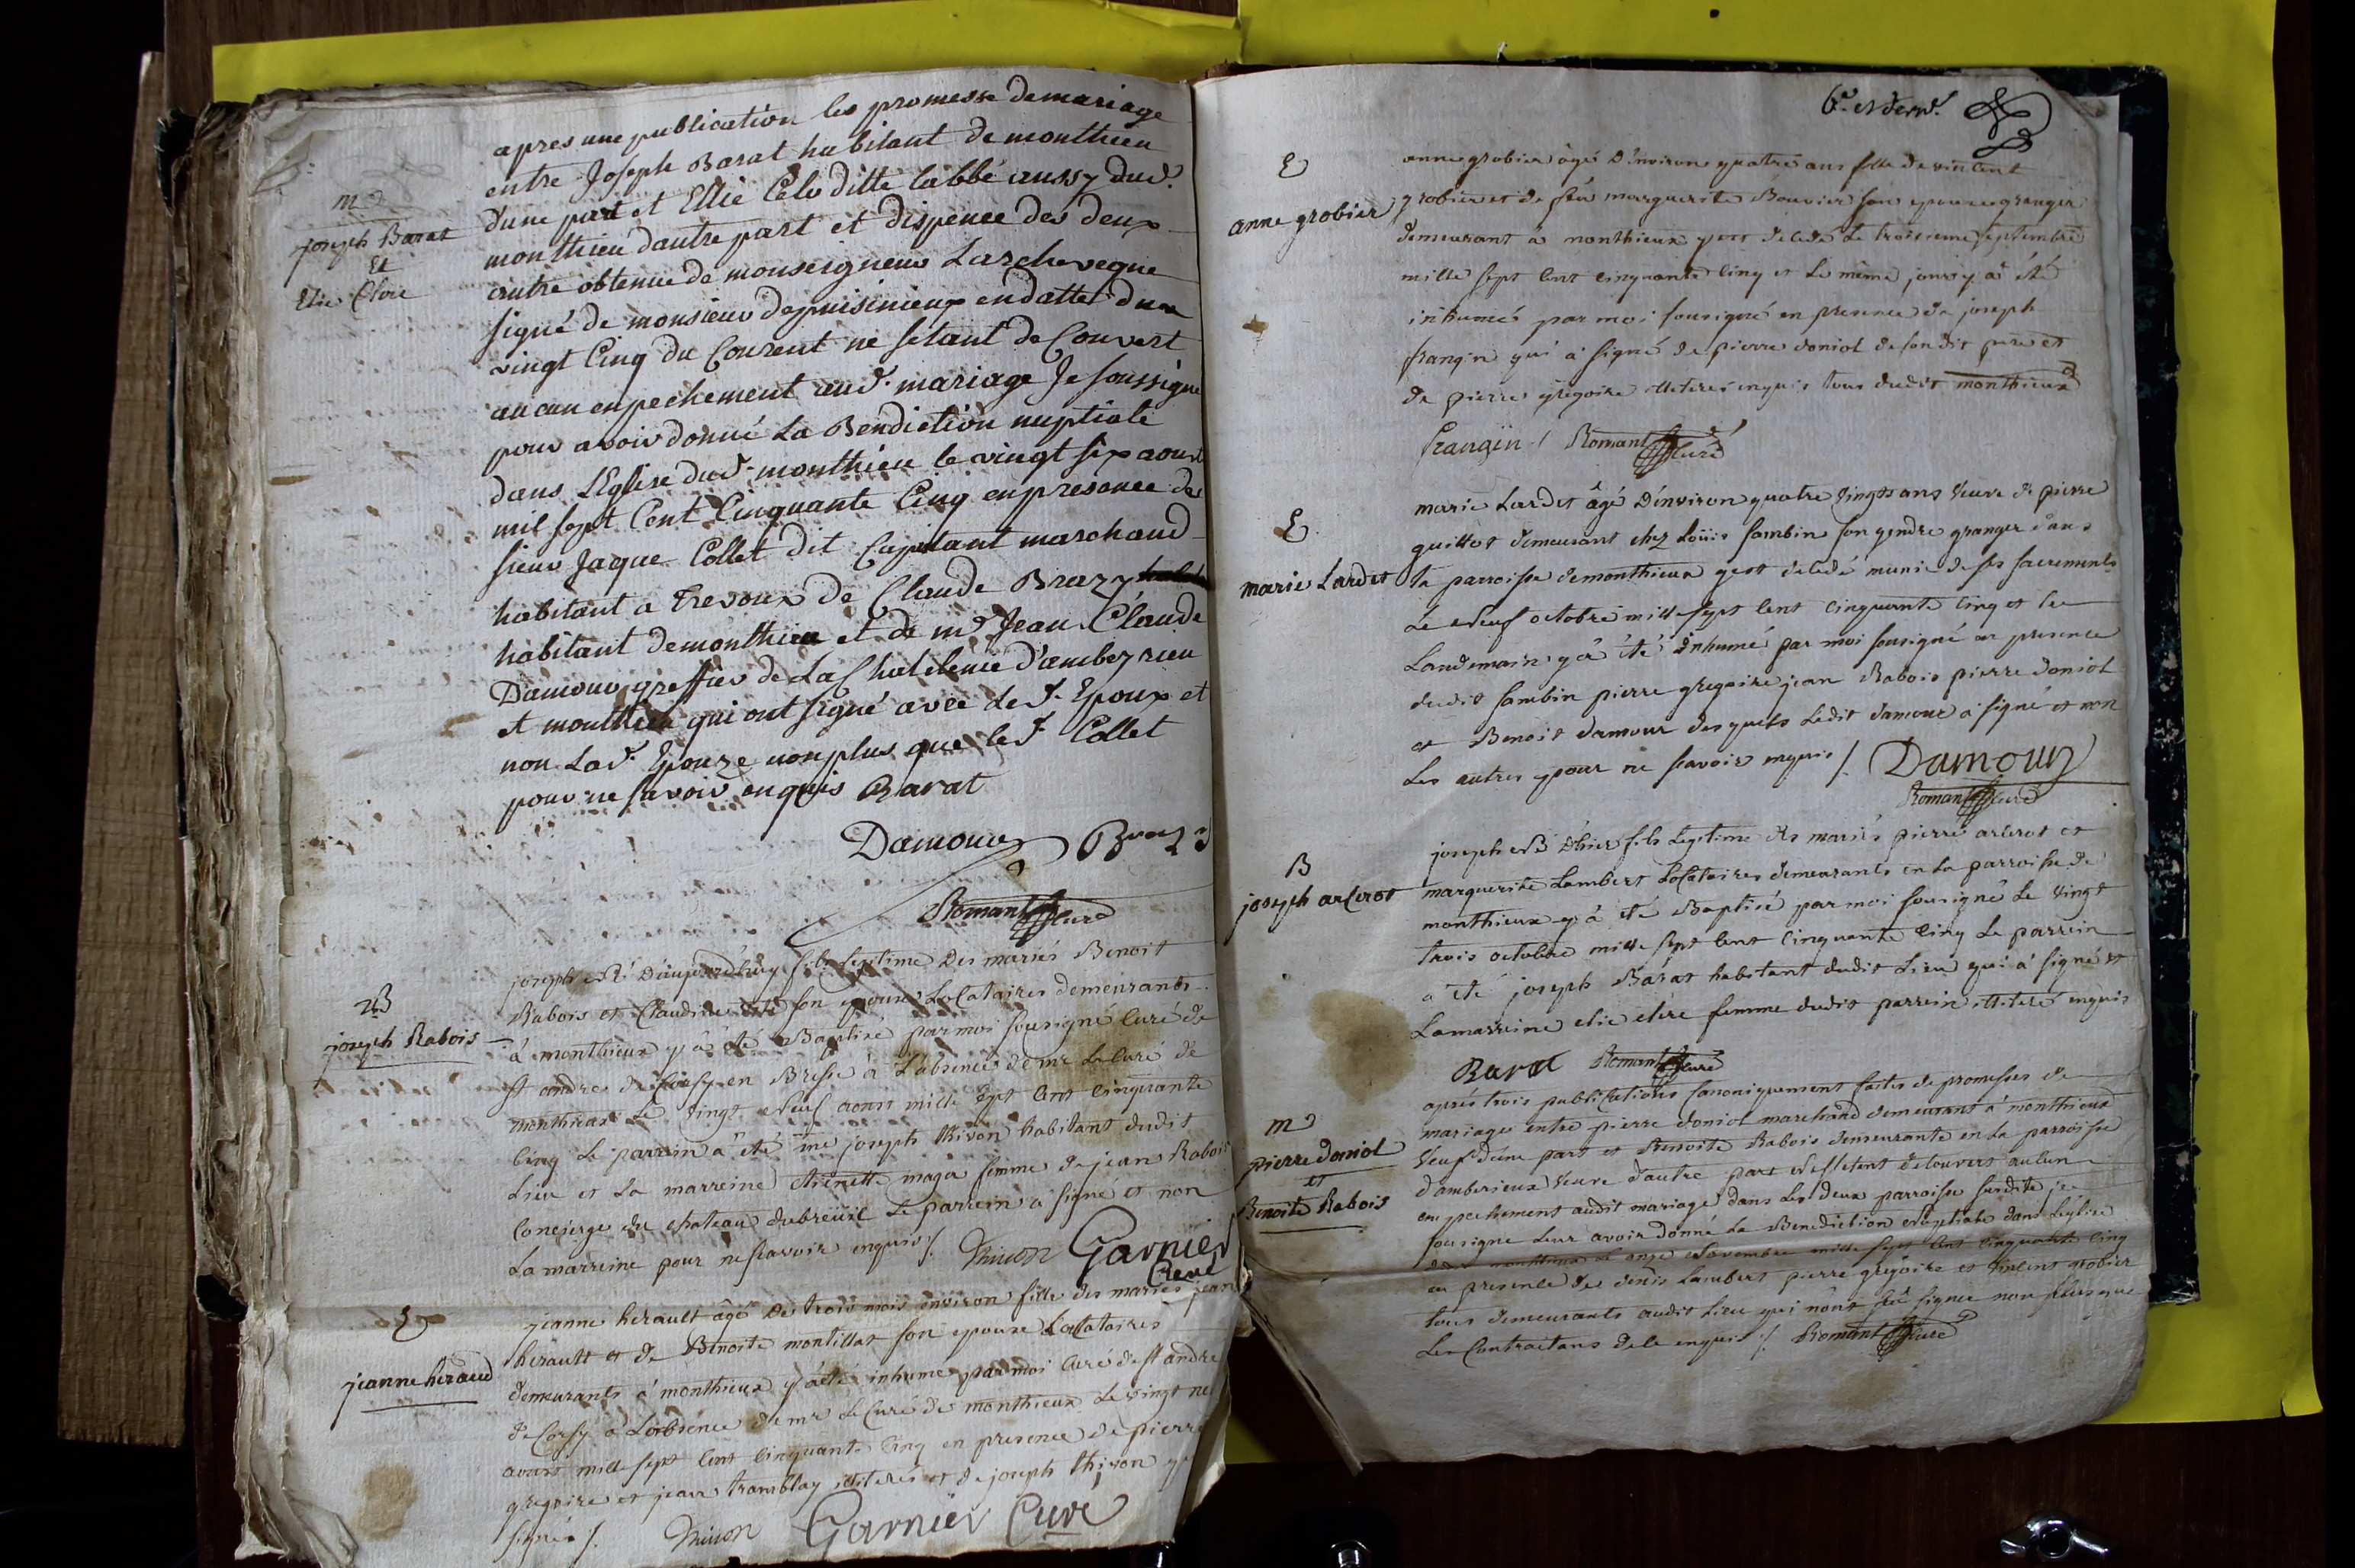 m
joseph Barat
Et
Elie Clere
apres une publication les promesse demariage
entre Joseph Barat habitant de monthieu
dune part et Ellie Cele ditte labbé aussy dud.
monthieu dautre part et dispence des deux
autre obtenue de monseigneur Larcheveque
signé de monsieur depuisinieux endatte du
vingt Cinq du Courent ne setant de Couvert
aucun enpechement aud. mariage Je soussigne
pour avoir donné La Bendiction nuptiale
dans LEglise dud. monthieu le vingt six aoust
mil sept Cent Cinquante Cinq enpresance de
sieur Jaque Collet dit Capitant marchand
habitant a Trevoux de Claude Brazy
habitant demonthieu et de mr. Jean Claude
Damour greffier de La Chatelenie d'ambeyrieu
et monthieu qui ont signé avec led. Epoux et
non Lad. Epouze nonplus que led. Collet
pour ne savoir enquis Barat
Damour Brazy
Romant Curé
B
joseph Rabois
joseph né d'aujourd'huy fils legitime des mariés Benoit
Rabois et Claudine son epouse Locataires demeurants
à monthieux y à été Baptisé par moi sousigné Curé de
st andre de Corsy en Bresse à L'absence de mr Le Curé de
monthieux Le vingt neuf aoust mille sept cent cinquante
cinq Le parrein a été me joseph thivon habitant dudit
Lieu et La marreine etiennette maga femme de jean Rabois
Concierge du chateau dubreüil Le parrein à signé et non
La marreine pour ne scavoir enquis /. Thivon Garnier
Curé
E
jeanne heraud
jeanne herault âgé de trois mois environ fille des mariés jean
herault et de Benoite montillat son epouse Locataires
demeurants à monthieux y à été inhumé par moi Curé de st andre
de Corsy à L'absence de mr Le Curé de monthieux Le vingt
aoust mille sept cent cinquante cinq en presence de pierre
gregoire et jean tramblay illiterés et de joseph thivon
signés /. Thivon Garnier Curé
6e. et dern.
E
anne grobier
anne grobier âgé d'environ quatre ans fille de vincent
grobier et de feüe marguerite Bouvier son epouse granger
demeurant à monthieux y est decedé Le troisieme septembre
mille sept cent cinquante cinq et Le même jour y à été
inhumés par moi sousigné en presence de joseph
frangin qui à signé de pierre doniol de son dit pere et
de pierre gregoire illiteres enquis tous dudit monthieux
frangin / Romant Curé
E
marie Lardet
marie Lardet âgé d'environ quatre vingts ans veuve de pierre
guillot demeurant chez Loüis sambin son gendre granger dans
la parroisse demonthieux y est decedé munie de ses sacrements
Le neuf octobre mille sept cent cinquante cinq et le
Landemain y à été inhumé par moi sousigné en presence
dudit sambin pierre gregoire jean Rabois pierre doniol
et Benoit damour desquels Ledit damour à signé et non
Les autres pour ne scavoir enquis /. Damour
Romant Curé
B
joseph arlerot
joseph né d'hier fils legitime des mariés pierre arlerot et
marguerite Lambert Locataires demeurants en La parroisse de
monthieux y à été Baptisé par moi sousigné Le vingt
trois octobre mille sept cent cinquante cinq Le parrein
a été joseph Barat habitant dudit Lieu qui à signé et
La marreine elie clére femme dudit parrein illiteré enquis
Barat Romant Curé
m
pierre doniol
et
Benoite Rabois
apres trois publications canoniquement faites de promesses de
mariage entre pierre doniol marchand demeurant à monthieux
veuf d'une part et Benoite Rabois demeurante en La parroisse
d'amberieux veuve d'autre part ne s'etent decouvert aucun
empechement audit mariage dans Les deux parroisse susdite je
sousigne Leur avoir donné La Benediction nuptiale dans L'église
dudit monthieux Le onze novembre mille sept cent cinquante cinq
en presence de denis Lambert pierre gregoire et vincent grobier
tous demeurants audit Lieu qui n'ont sçu signer non plus que
Les Contractans de ce enquis /. Romant Curé